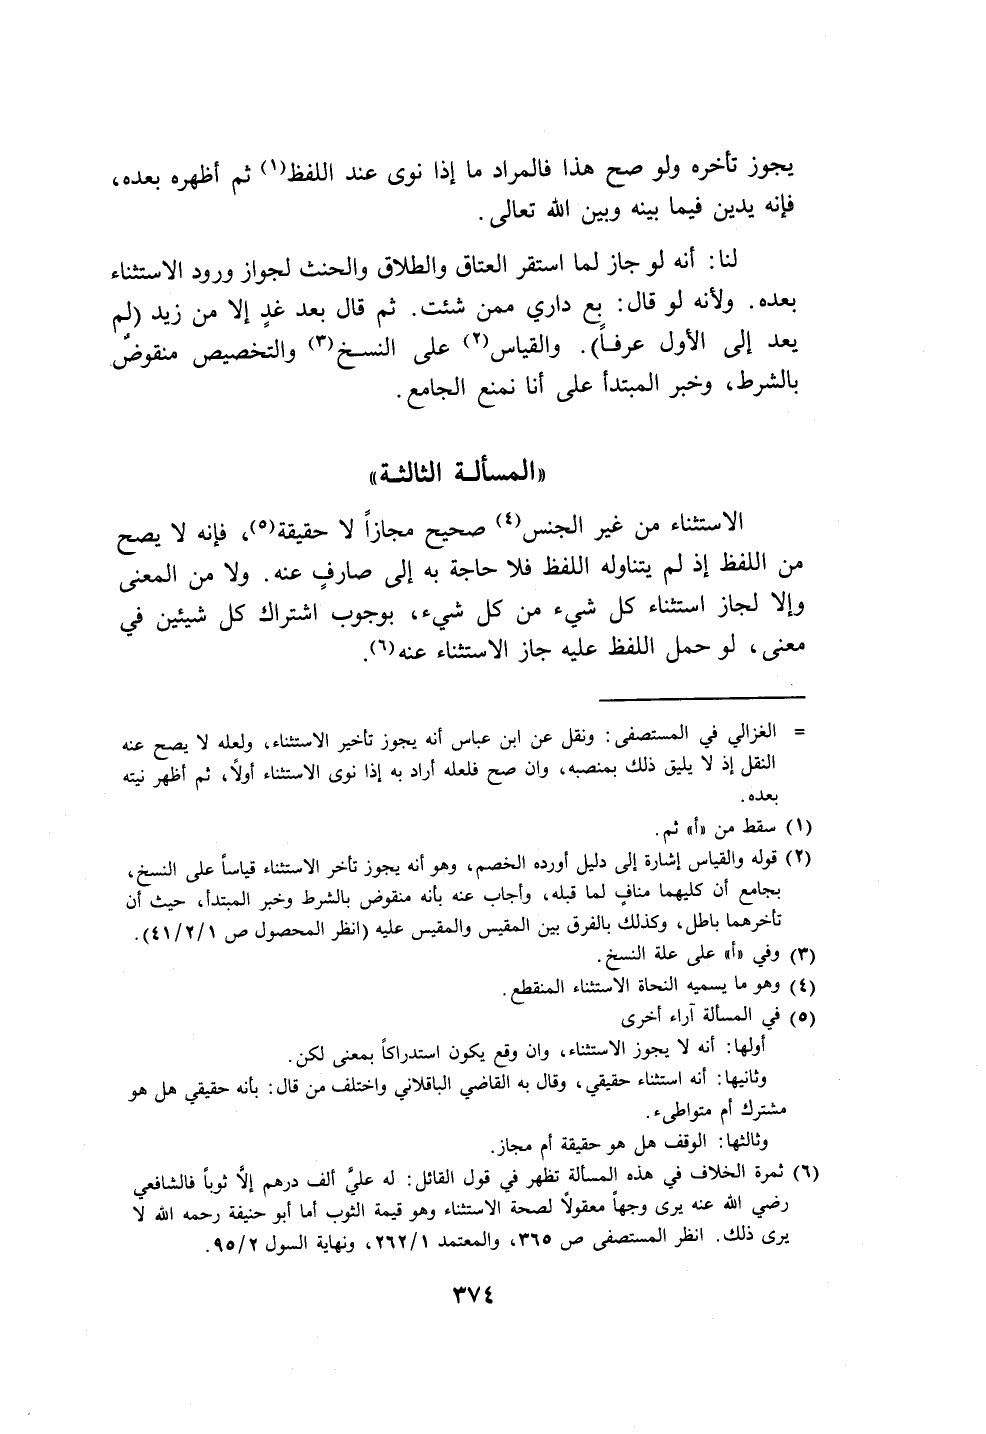 يجوز تأخره ولو صح هذا فالمراد ما إذا نوى عند اللفظ(١) ثم أظهره بعده،
فإنه يدين فيما بينه وبين الله تعالى.
لنا: أنه لو جاز لما استقر العتاق والطلاق والحنث لجواز ورود الاستثناء
بعده. ولأنه لو قال: بع داري ممن شئت. ثم قال بعد غدٍ إلا من زيد (لم
يعد إلى الأول عرفاً). والقياس(٢) على النسخ(٣) والتخصيص منقوضٌ
بالشرط، وخبر المبتدأ على أنا نمنع الجامع.
«المسألة الثالثة»
الاستثناء من غير الجنس(٤) صحيح مجازاً لا حقيقة(٥)، فإنه لا يصح
من اللفظ إذ لم يتناوله اللفظ فلا حاجة به إلى صارفٍ عنه. ولا من المعنى
وإلا لجاز استثناء كل شيء من كل شيء، بوجوب اشتراك كل شيئين في
معنى، لو حمل اللفظ عليه جاز الاستثناء عنه(٦).
= الغزالي في المستصفى: ونقل عن ابن عباس أنه يجوز تأخير الاستثناء، ولعله لا يصح عنه
النقل إذ لا يليق ذلك بمنصبه، وان صح فلعله أراد به إذا نوى الاستثناء أولًا، ثم أظهر نيته
بعده.
(١) سقط من «أ» ثم.
(٢) قوله والقياس إشارة إلى دليل أورده الخصم، وهو أنه يجوز تأخر الاستثناء قياساً على النسخ،
بجامع أن كليهما منافٍ لما قبله، وأجاب عنه بأنه منقوض بالشرط وخبر المبتدأ، حيث أن
تأخرهما باطل، وكذلك بالفرق بين المقيس والمقيس عليه (انظر المحصول ص ٤١/٢/١).
(٣) وفي «أ» على علة النسخ.
(٤) وهو ما يسميه النحاة الاستثناء المنقطع.
(٥) في المسألة آراء أخرى
أولها: أنه لا يجوز الاستثناء، وان وقع يكون استدراكاً بمعنى لكن.
وثانيها: أنه استثناء حقيقي، وقال به القاضي الباقلاني واختلف من قال: بأنه حقيقي هل هو
مشترك أم متواطىء.
وثالثها: الوقف هل هو حقيقة أم مجاز.
(٦) ثمرة الخلاف في هذه المسألة تظهر في قول القائل: له عليَّ ألف درهم إلَّا ثوباً فالشافعي
رضي الله عنه يرى وجهاً معقولًا لصحة الاستثناء وهو قيمة الثوب أما أبو حنيفة رحمه الله لا
يرى ذلك. انظر المستصفى ص ٣٦٥، والمعتمد ٢٦٢/١، ونهاية السول ٩٥/٢.
٣٧٤